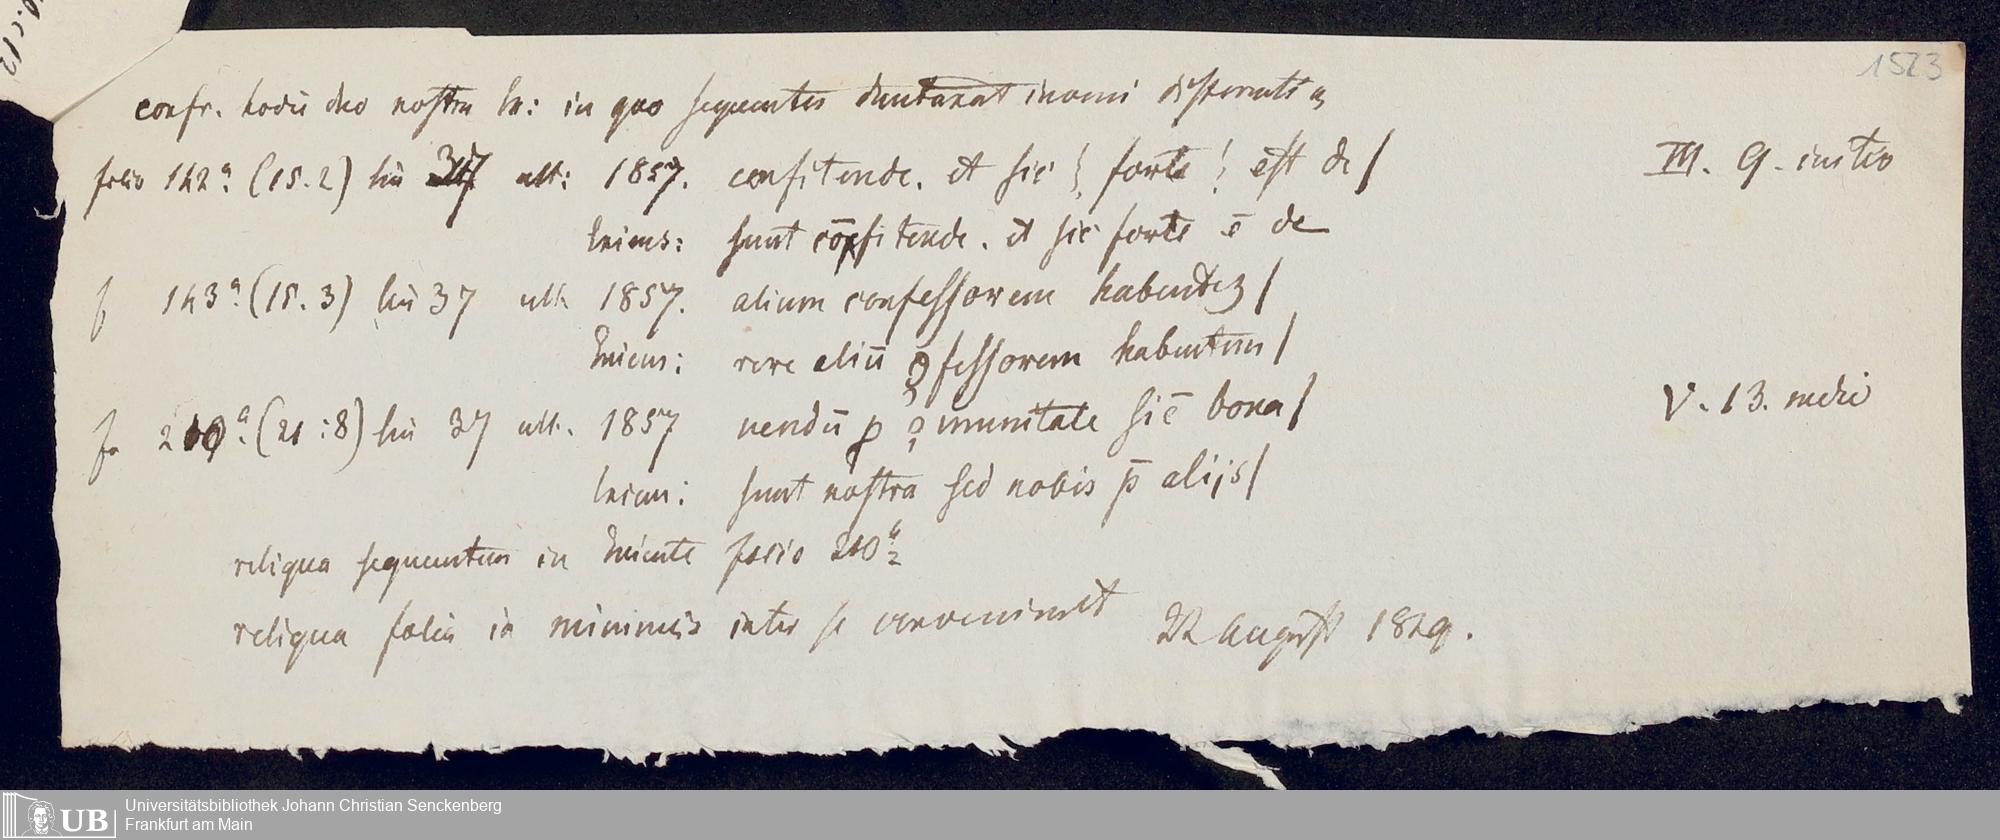 1523
confr. hodiē duo nostra in quo sequentes duntaxat inveni differentias
folio 142ª. (15.2) lin 37 ult: 1857. confitende. et sic forte est de/ III. 9. initio
sunt cōfitende. et sic forte ē de
f 143ª. (15.3) lin 37 ult. 1857. alium confessorem habentez/
vere aliū ꝯfessorem habentem/
fo 210ª. (21:8) lin 37 ult. 1857 nendū ꝑ ꝯmunitate sic bona/ V. 13. medio
sunt nostra sed nobis p̄ alijs/
reliqua sequuntur in folio 210
reliqua folia in minimis inter se conveniunt 22 August 1829.
Universitätsbibliothek Johann Christian Senckenberg
Frankfurt am Main
UB